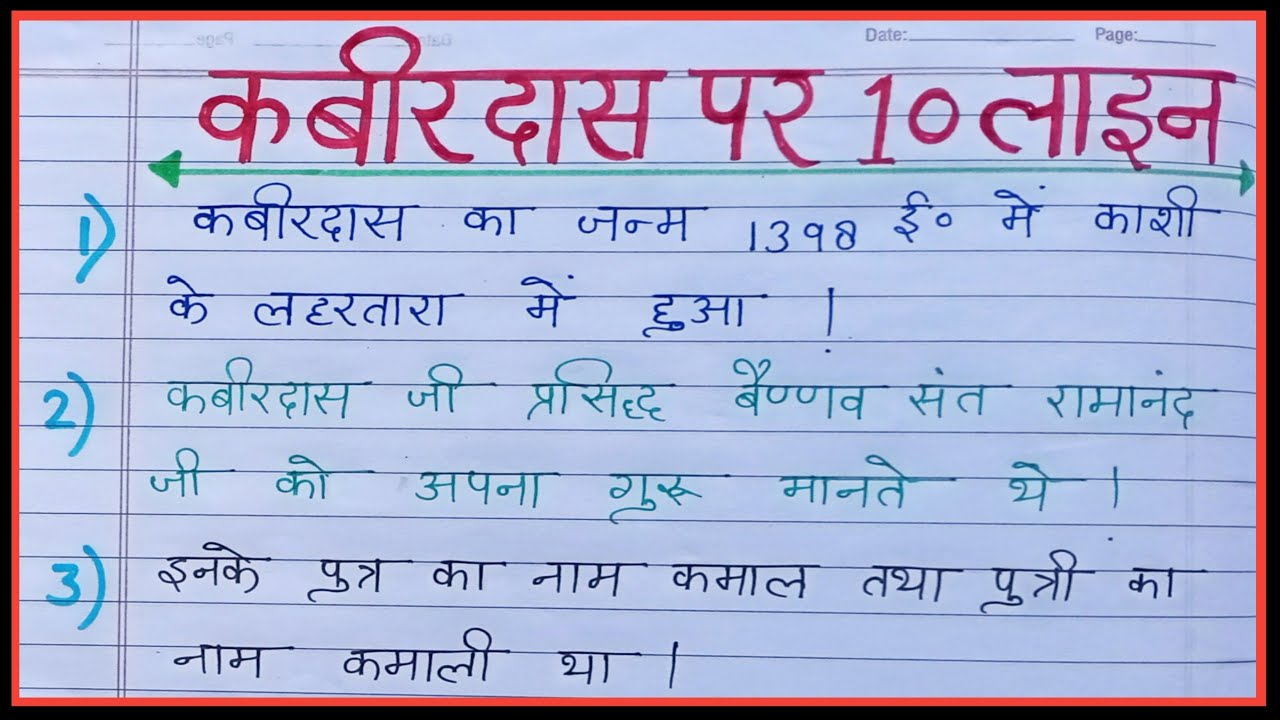 Date: Page:
कबीरदास पर 10 लाइन
1) कबीरदास का जन्म 1398 ई० में काशी
के लहरतारा में हुआ ।
2) कबीरदास जी प्रसिद्ध बैष्णव संत रामानंद
जी को अपना गुरू मानते थे ।
3) इनके पुत्र का नाम कमाल तथा पुत्री का
नाम कमाली था ।